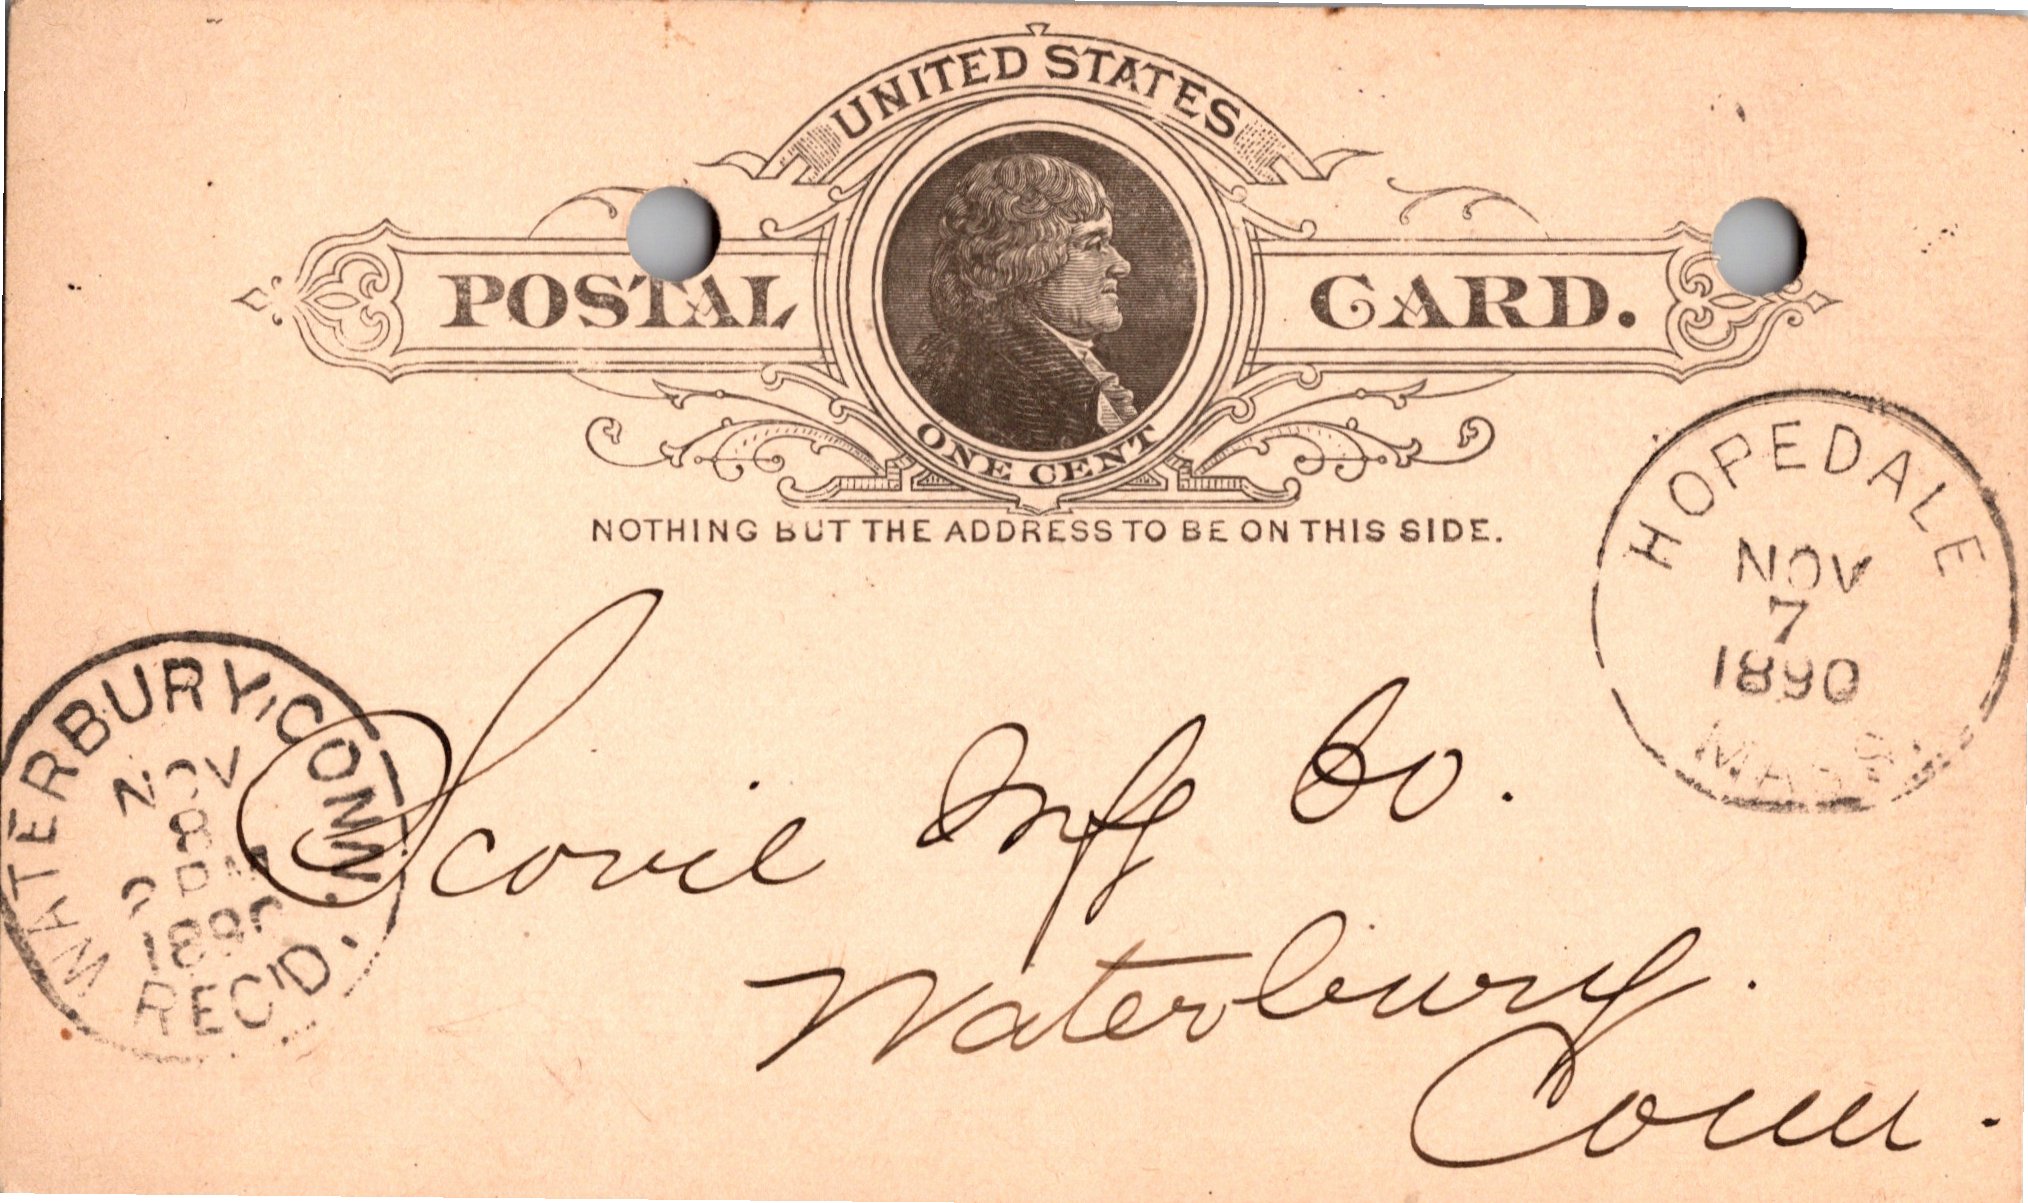 UNITED STATES
POSTAL CARD.
ONE CENT
NOTHING BUT THE ADDRESS TO BE ON THIS SIDE.
HOPEDALE
NOV
7
1890
MASS.
WATERBURY, CONN.
NOV
8
2 PM
1890
REC'D.
Scovil Mfg Co.
Waterbury.
Conn.